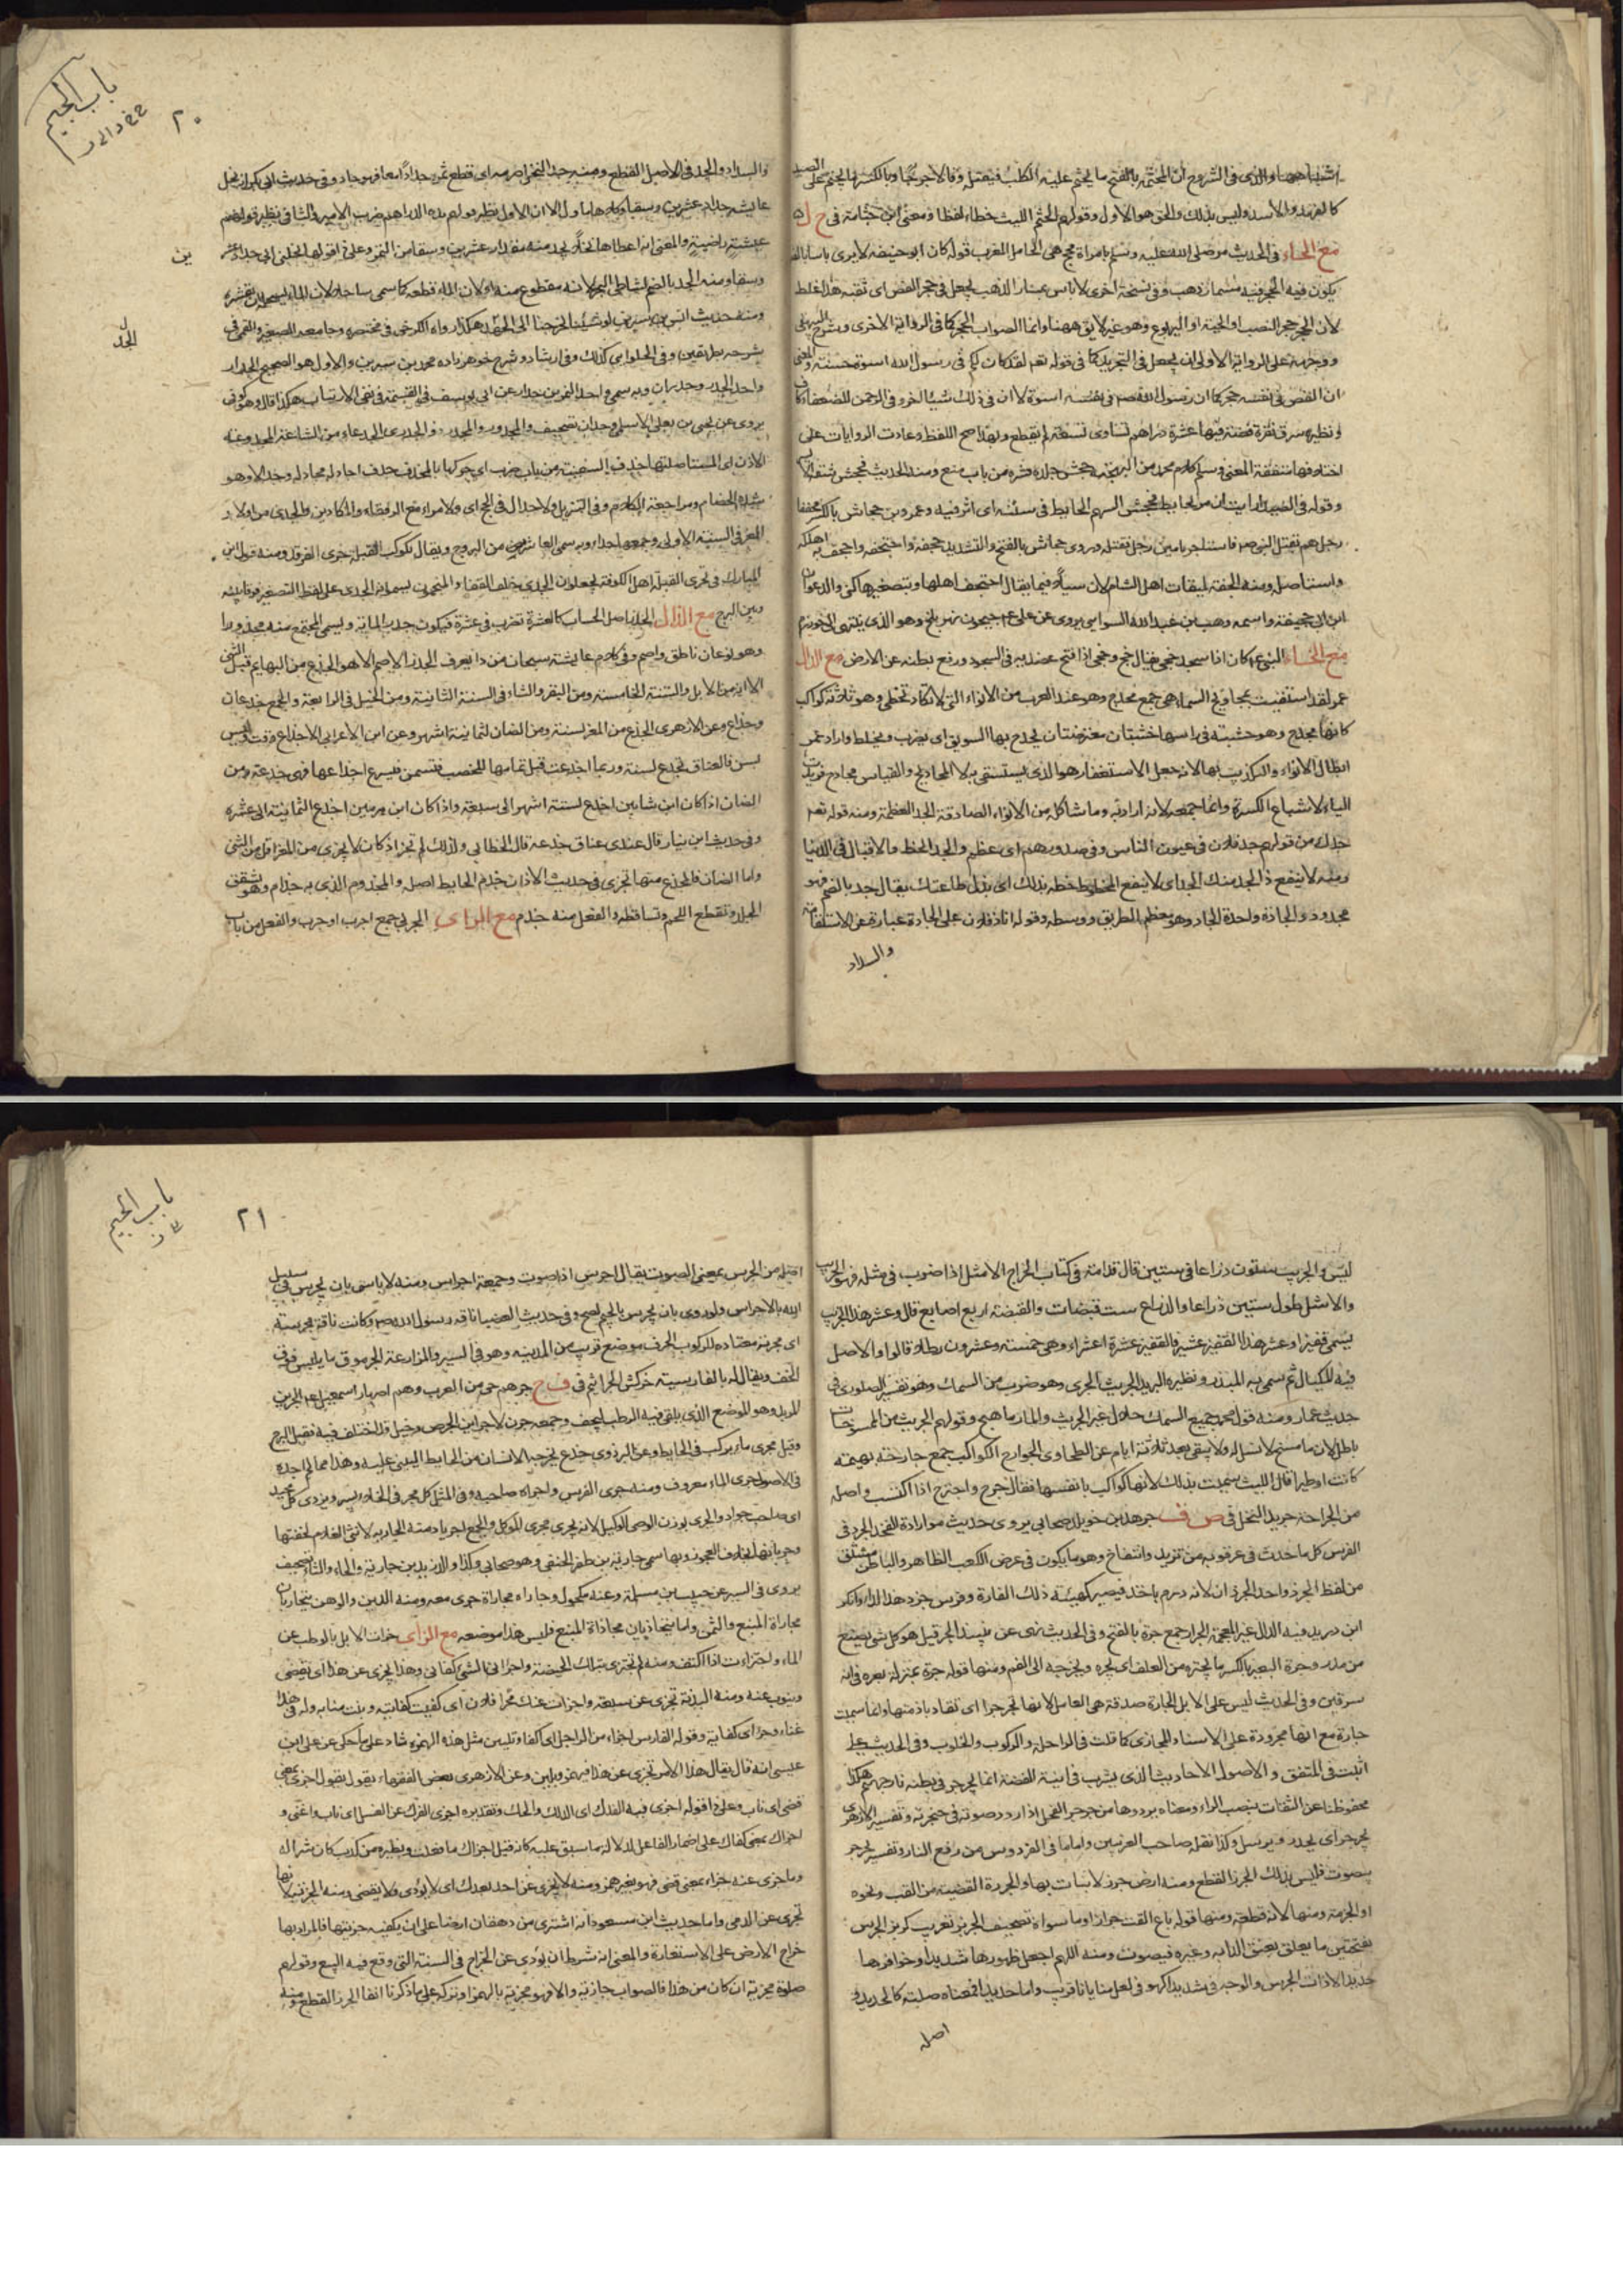 والذي في الشروح ان المجثمة بالفتح ما يجثم عليه الكلب فيقتله وبالكسر ما يجثم على الصيد
كالفهد والاسد وليس بذلك والحق هو الاول وقولهم الجثم الليث خطاء لفظا ومعنى ابن جثامة في
مع الحاء في الحديث مر صلى الله عليه وسلم بامراة مجح هي الحامل المقرب قوله كان ابو حنيفه لا يرى باسا بالفص
يكون فيه الحجر فيه مسمار ذهب وفي نسخة اخرى لا باس بمسمار الذهب يجعل في حجر الفص اى ثقبه هذا غلط
لان الجحر جحر الضب او الحية او اليربوع وهو غير لايق ههنا وانما الصواب الحجر كما في الرواية الاخرى
ووجهه على الرواية الاولى ان يجعل في التجريد كما في قوله تعم لقد كان لكم في رسول الله اسوة حسنة والمعنى
ان الفص في نفسه حجر كما ان رسول الله صم في نفسه اسوة لا ان في ذلك شيئا اخر وفي الرحمن للضعفاء كاف
ونظيره سرق نقرة فضة فيها عشرة دراهم تساوى تسعة لم يقطع وبهذا صح اللفظ وعادت الروايات على
اختلافها متفقة المعنى وسلم كلام محمد من الهجنة جحش جلده قشره من باب منع ومنه الحديث فجحش شقه الايمن
وقوله في الصيد ارايت ان مر الحايط فجحش السهم الحايط في سننه اى اثر فيه وعمرو بن جحاش بالكسر مخففا
رجل هم بقتل النبي صم فاستاجر يامين رجلا فقتله ويروى جحاش بالفتح والتشديد جحفه واجتحفه واجحف به اهلكه
واستاصله ومنه الجحفة لميقات اهل الشام لان سيلا فيما يقال اجتحف اهلها وبتصغيرها كني والد عون
ابن ابي جحيفة واسمه وهب بن عبد الله السوائي يروى عن علي عم جيحون نهر بلخ وهو الذى ينتهى الى خوارزم
مع الخاء النبي عم كان اذا سجد جخى يقال جخ وجخى اذا فتح عضديه في السجود ورفع بطنه عن الارض مع الدال
عمر لقد استسقيت بمجاديح السماء هي جمع مجدح وهو عند العرب من الانواء التي لا تكاد تخطى وهو ثلاثة كواكب
كانها مجدح وهو خشبة في راسها خشبتان معترضتان يجدح بها السويق اى يضرب ويخلط واراد عمر
ابطال الانواء والتكذيب بها لانه جعل الاستغفار هو الذى يستسقى به لا المجاديح والقياس مجادح فزيدت
الياء لاشباع الكسرة وانما جمعه لانه اراده وما شاكله من الانواء الصادقة الجد العظمة ومنه قوله تعم
جدك من قولهم جد فلان في عيون الناس وفي صدورهم اى عظم والجد الحظ والاقبال في الدنيا
ومنه لا ينفع ذا الجد منك الجد اى لا ينفع المحظوظ حظه بذلك اى بدل طاعتك يقال جد بالضم فهو
مجدود والجادة واحدة الجاد وهو معظم الطريق ووسطه وقوله انا وفلان على الجادة عبارة عن الاستقامة
والسداد
باب الجيم
٢٠
والسداد والجد في الاصل القطع ومنه جد النخل صرمه اى قطع ثمره جدادا فهو جاد وفي حديث ابي بكر انه نحل
عايشه جداد عشرين وسقا وكلاهما ماول الا ان الاول نظير قولهم هذه الدراهم ضرب الامير والثاني نظير قولهم
عيشة راضية والمعنى انه اعطاها نخلا يجد منه مقدار عشرين وسقا من التمر وعلى ذا قولها نحلني ابي جداد عشر
ين
وسقا ومنه الجد بالضم لشاطى النهر لانه مقطوع منه او لان الماء قطعه كما سمى ساحلا لان الماء يسحله اى يقشره
ومنه حديث انس بن سيرين لو شئنا لخرجنا الى الجد هكذا رواه الكرخى في مختصره وجامعه الصغير والقمى في
الجد
شرحه بطريقين وفي الحلوايى كذلك وفي ارشاد وشرح خواهرزاده محمد بن سيرين والاول هو الصحيح الجدار
واحد الجدر وجدران وبه سمى والد النمر بن جدار عن ابي يوسف في القسمة في نفى الارتياب هكذا قال وهو كوفي
يروى عن يحيى بن يعلى الاسلمى وجدان تصحيف والمجدور والمجدر ذو الجدرى الجدعاء من الشاء المجدوعة
الاذن اى المستاصلتها جدف السفينة من باب ضرب اى حركها بالمجدف جدف اجادله مجادلة وجدالا وهو
شدة الخصام ومراجعة الكلام وفي التنزيل ولا جدال في الحج اى ولا مراء مع الرفقاء والمكارين والجدى من اولاد
المعز في السنة الاولى وجمعه اجداء وبه سمى العاشر من البروج ويقال لكوكب القبلة جدى الفرقد ومنه قول ابن
المبارك في تحرى القبلة اهل الكوفة يجعلون الجدى خلف القفا والمنجمون يسمونه الجدى على لفظ التصغير فرقا بينه
وبين البرج مع الذال الجذر اصل الحساب كالعشرة تضرب في عشرة فيكون جذر الماية ويسمى المجتمع منه مجذورا
وهو نوعان ناطق واصم وفي كلام عايشه سبحان من لا يعرف الجذر الاصم الا هو الجذع من البهايم قبل الثني
الا انه من الابل والسنة الخامسة ومن البقر والشاء في السنة الثانية ومن الخيل في الرابعة والجمع جذعان
وجذاع وعن الازهرى الجذع من المعز لسنة ومن الضان لثمانية اشهر وعن ابن الاعرابي الاجذاع وقت وليس
بسن فالعناق تجذع لسنة وربما اجذعت قبل تمامها للخصب فتسمن فيسرع اجذاعها فهى جذعة ومن
الضان اذا كان ابن شابين اجذع لستة اشهر الى سبعة واذا كان ابن هرمين اجذع لثمانية الى عشرة
وفي حديث ابن نيار قال عندى عناق جذعة قال الخطابي ولذلك لم تجز اذ كان لا يجزى من المعز اقل من الثني
واما الضان فالجذع منها تجزى في حديث الاذان جذم الحايط اصله والمجذوم الذى به جذام وهو تشقق
الجلد وتقطع اللحم وتساقطه والفعل منه جذم مع الراء الجربى جمع اجرب او جرب والفعل من باب
لبس والجريب ستون ذراعا في ستين قال قدامة في كتاب الخراج الاشل اذا ضرب في مثله فهو الجريب
والاشل طول ستين ذراعا والذراع ست قبضات والقبضة اربع اصابع قال وعشر هذا الجريب
يسمى قفيزا وعشر هذا القفيز عشيرا فالقفيز عشرة اعشراء وهى خمسة وعشرون رطلا قالوا والاصل
فيه المكيال ثم سمى به المبذر ونظيره البريد الجريث الجرى وهو ضرب من السمك وهو تفسير الصلور في
حديث عمار ومنه قول محمد جميع السمك حلال غير الجريث والمارماهيج وقولهم الجريث من الممسوخات
باطل لان ما مسخ لا نسل له ولا يبقى بعد ثلاثة ايام عن الطحاوى الجوارح الكواسب جمع جارحة بهيمة
كانت او طيرا قال الليث سميت بذلك لانها كواسب بانفسها يقال جرح واجترح اذا اكتسب واصله
من الجراحة جريد النخل في ص ف جرهد بن خويلد صحابى يروى حديث مواراة الفخذ الجرذ في
الفرس كل ما حدث في عرقوبه من تزيد وانتفاخ وهو ما يكون في عرض الكعب الظاهر والباطن مشتق
من لفظ الجرذ واحد الجرذان لانه ورم ياخذ فيصير كهيئة ذلك الفارة وفرس جرذ هذا الداء وانكر
ابن دريد فيه الدال غير المعجمة الجرار جمع جرة بالفتح وفي الحديث نهى عن نبيذ الجر قيل هو كل شي يصنع
من مدر وجرة البعير بالكسر ما يجتره من العلف اى يجره ويخرجه الى الفم ومنها قوله جرة بمنزلة بعره في انه
سرقين وفي الحديث ليس على الابل الجارة صدقة هى العوامل لانها تجر جرا اى تقاد بازمتها وانما سميت
جارة مع انها مجرورة على الاسناد المجازى كما قلت في الراحلة والركوب والحلوب وفي الحديث على
اثبت في المتفق والاصول الاحاديث الذى يشرب في انية الفضة انما يجرجر في بطنه نار جهنم هكذا
محفوظنا عن الثقات بنصب الراء ومعناه يرددها من جرجر الفحل اذا ردد صوته في حنجرته وتفسير الازهرى
يجرجر اى يحدر ويرسل وكذا نقله صاحب الغريبين واما ما في الفردوس من رفع النار وتفسير يجرجر
بصوت فليس بذلك الجرز القطع ومنه ارض جرز لا نبات بها والجرزة القبضة من القت ونحوه
او الحزمة ومنها لانه قطعة ومنها قوله باع القت جرزا وما سواه تصحيف الجربز تعريب كربز الجرس
بفتحتين ما يعلق بعنق الدابه وغيره فيصوت ومنه اللهم اجعل ظهورها شديدا وحوافرها
حديدا الا ذات الجرس والوجه في شديدا كهو في لعل منايانا قريب واما حديدا فمعناه صلبة كالحديد
اصله
باب الجيم
٢١
اصله من الجرس بمعنى الصوت يقال اجرس اذا صوت وجمعه اجراس ومنه لا باس بان يجرس في سبيل
الله بالاجراس ولو روى بان يحرس بالحاء لصح وفي حديث العضبا ناقه رسول الله صم وكانت ناقة مجرسة
اى مجربة معتاده للركوب الجرف موضع قريب من المدينه وهو في السير والمزارعة الجرموق ما يلبس فوق
الخف ويقال له بالفارسية خركش الجراثيم في ق ح جرهم حى من العرب وهم اصهار اسمعيل عم الجرين
المربد وهو الموضع الذى يلقى فيه الرطب ليجف وجمعه جرن لا جراين الجرصن دخيل وقد اختلف فيه فقيل البرج
وقيل مجرى ماء يركب في الحايط وعن البزدوى جذع يخرجه الانسان من الحايط ليبنى عليه وهذا مما لم اجده
في الاصول جرى الماء معروف ومنه جرى الفرس واجراه صاحبه وفي المثل كل مجر في الخلاء يسر ويروى كل مجيد
اى صاحب جواد والجرى بوزن الوصى الوكيل لانه يجرى مجرى الموكل والجمع اجرياء ومنه الجارية لانثى الغلام لخفتها
وجريانها بخلاف العجوز وبها سمى جارية بن ظفر الحنفى وهو صحابى وكذا والد يزيد بن جارية والحاء والثاء تصحيف
يروى في السير عن حبيب بن مسلمة وعنه مكحول وجاراه مجاراة جرى معه ومنه الدين والرهن يتجاريان
مجاراة المبيع والثمن واما يتحاذيان محاذاة المبيع فليس هذا موضعه مع الزاى جزات الابل بالرطب عن
الماء واجتزات اذا اكتفت ومنه لم تجتزى بتلك الحيضة واجزانى الشي كفانى وهذا يجزى عن هذا اى يقضى
وينوب عنه ومنه البدنة تجزى عن سبعة واجزات عنك مجزا فلان اى كفيت كفايته ونبت منابه وله في هذا
غناء وجزا اى كفاية وقوله الفارس اجزاء من الراجل اى اكفاء وتليين مثل هذه الهمزة شاذ على ما حكى عن على ابن
عيسى انه قال يقال هذا الامر تجزى عن هذا فيهمز ويلين وعن الازهرى بعض الفقهاء يقول اجزى بمعنى
قضى اى ناب وعلى ذا قوله اجزى فيه الفرك اى الدلك والحك وتقديره اجزى الفرك عن الغسل اى ناب واغنى و
اجزاك بمعنى كفاك على اضمار الفاعل لدلالة ما سبق عليه كانه قيل اجزاك ما فعلت ونظيره من كذب كان شرا له
وما جزى عنه جزاء بمعنى قضى فهو بغير همز ومنه لا يجزى عن احد بعدك اى لا يؤدى ولا يقضى ومنه الجزية لانها
تجزى عن الذمى واما حديث ابن مسعود انه اشترى من دهقان ارضا على ان يكفيه جزيتها فالمراد بها
خراج الارض على الاستعارة والمعنى انه شرط ان يؤدى عن الخراج في السنة التى وقع فيه البيع وقولهم
صلوة مجزية ان كان من هذا فالصواب جازية والا فهو مجزية بالهمز او تركه على ما ذكرنا انفا الجزر القطع ومنه